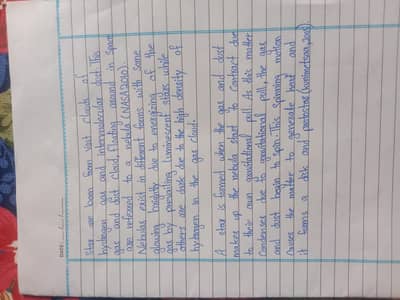 DATE:
Star are born from vast clouds of
hydrogen gas and interstellar dust. This
gas and dust cloud floating around in space
are refered to a nebula (NASA, 2010).
Nebulas exist in different forms with some
glowing brightly due to energizing of the
gas by prevailing luminescent stars while
others are dark due to the high density of
hydrogen in the gas cloud.
A star is formed when the gas and dust
makes up the nebula start to contract due
to their own gravitational pull. As this matter
condenses due to gravitational pull, the gas
and dust begins to spin. This spinning motion
causes the matter to generate heat and
it forms a disk and protostar